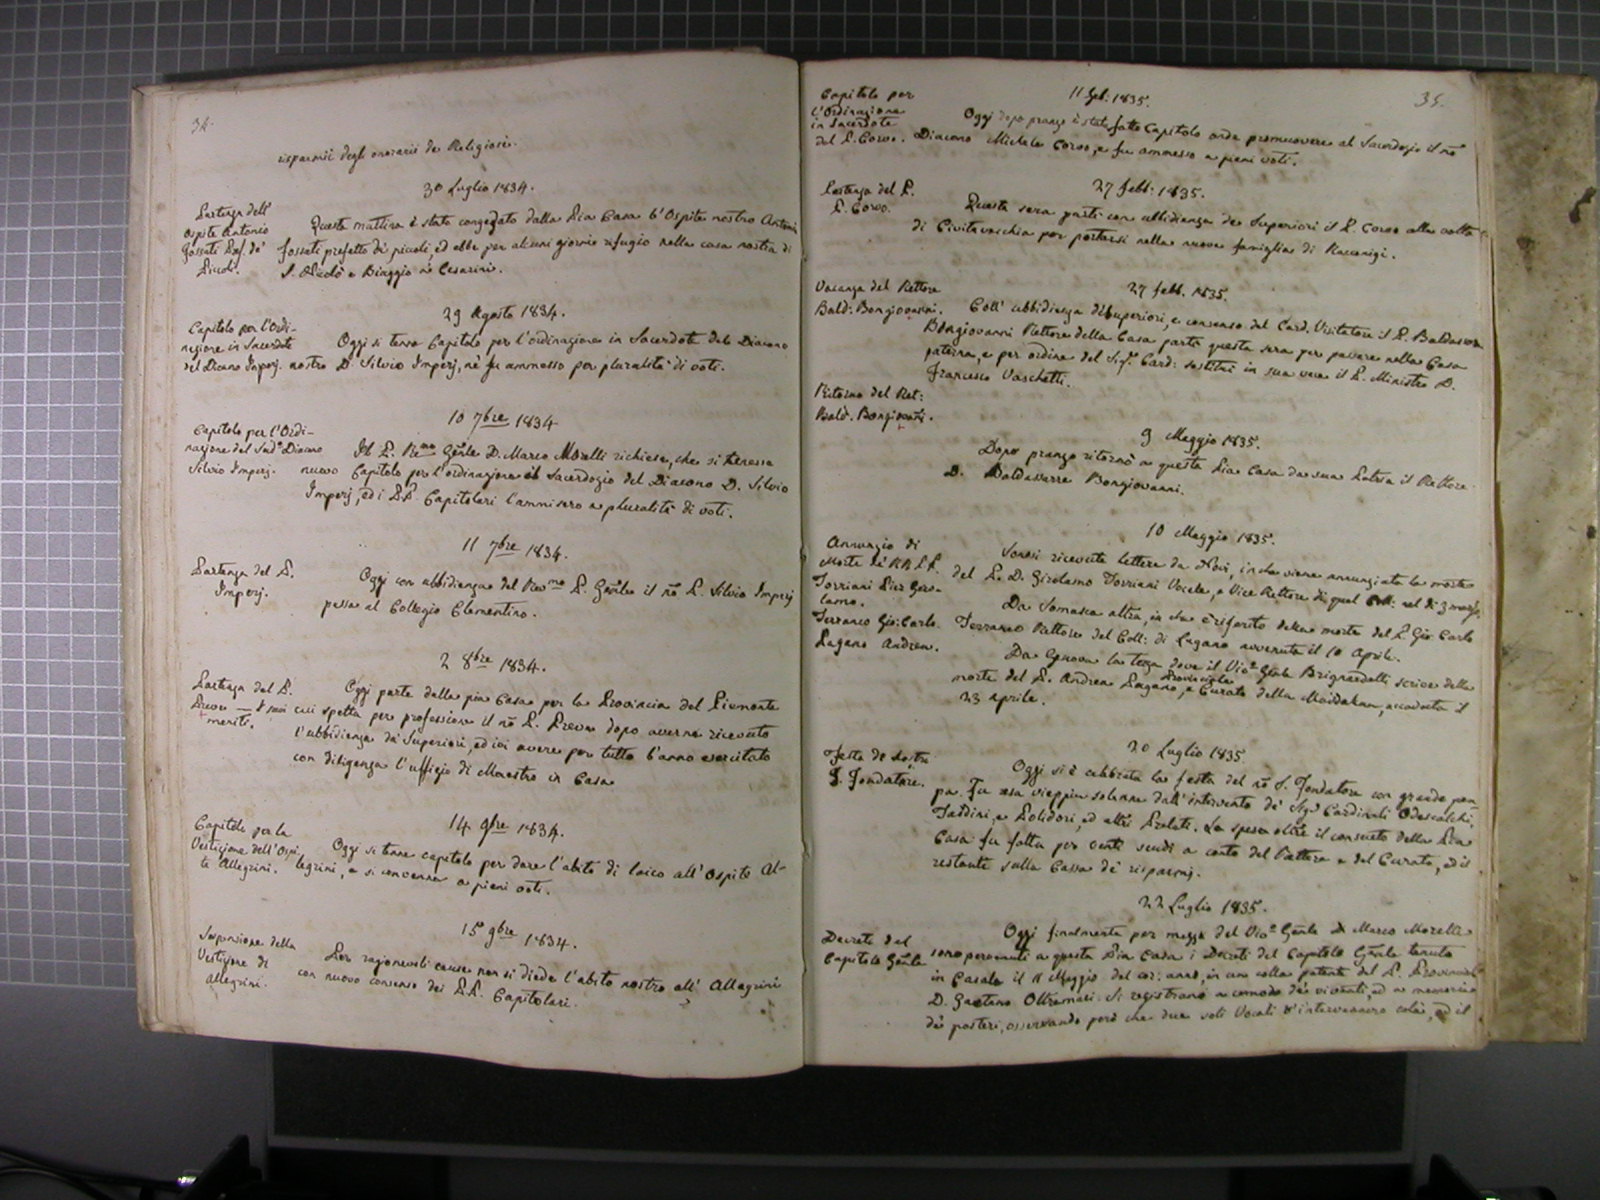 34.
risparmii degli onorarii de Religiosi.
30 Luglio 1834.
Partenza dell'
Ospite Antonio
Fossati Pref. de'
Piccoli.
Questa mattina è stato congedato dalla Pia Casa l'Ospite nostro Antonio
Fossati prefetto de' piccoli, ed ebbe per alcuni giorni rifugio nella casa nostra di
S. Nicolò e Biaggio a' Cesarini.
29 Agosto 1834.
Capitolo per l'Ordi-
nazione in Sacerdote
del Diacono Imperj.
Oggi si tenne Capitolo per l'ordinazione in Sacerdote del Diacono
nostro D. Silvio Imperj, nè fu ammesso per pluralità di voti.
10 7bre 1834
Capitolo per l'Ordi-
nazione del Sudo Diacono
Silvio Imperj.
Il P. Rmo Gnle D. Marco Morelli richiese, che si tenesse
nuovo Capitolo per l'ordinazione al Sacerdozio del Diacono D. Silvio
Imperj, ed i PP. Capitolari l'ammisero a pluralità di voti.
11 7bre 1834.
Partenza del P.
Imperj.
Oggi con ubbidienza del Revmo P. Gnle il nõ P. Silvio Imperj
passa al Collegio Clementino.
2 8bre 1834.
Partenza del P.
Preve — I suoi
meriti.
Oggi parte dalla pia Casa per la Provincia del Piemonte
cui spetta per professione il nõ P. Preve dopo averne ricevuto
l'ubbidienza da' Superiori, ed ivi avere per tutto l'anno esercitato
con diligenza l'uffizio di Maestro in Casa
14 9bre 1834.
Capitolo per la
Vestizione dell'Ospi
te Allegrini.
Oggi si tenne capitolo per dare l'abito di laico all'Ospite Al-
legrini, e si convenne a pieni voti.
15 9bre 1834.
Sospensione della
Vestizione di
Allegrini.
Per ragionevoli cause non si diede l'abito nostro all' Allegrini
con nuovo consenso dei P.P. Capitolari.
35.
11 Feb: 1835.
Capitolo per
l'Ordinazione
in Sacerdote
del P. Corvo.
Oggi dopo pranzo è stato fatto Capitolo onde promuovere al Sacerdozio il nõ
Diacono Michele Corvo, e fu ammesso a pieni voti.
27 febb: 1835.
Partenza del P.
P. Corvo.
Questa sera partì con ubbidienza de Superiori il P. Corvo alla volta
di Civitavecchia per portarsi nella nuova famiglia di Racconigi.
27 febb. 1835.
Vacanza del Rettore
Bald: Bongiovanni.
Coll' ubbidienza de' Superiori, e consenso del Card. Visitatore il P. Baldassare
Bongiovanni Rettore della Casa partì questa sera per passare nella Casa
paterna, e per ordine del Sigr Card: sostituì in sua vece il P. Ministro D.
Francesco Vaschetti.
Ritorno del Ret:
Bald. Bongiovani.
9 Maggio 1835.
Dopo pranzo ritornò a questa Pia Casa da sua Patria il Rettore
D. Baldassarre Bongiovanni.
10 Maggio 1835.
Annunzio di
Morte de' RR. P.P.
Torriani Pier Giro-
lamo.
Terraneo Gio: Carlo.
Pagano Andrea.
Sonosi ricevute lettere da Novi, in cui viene annunziata la morte
del P. D. Girolamo Torriani Vocale, e Vice Rettore di quel Coll: nel dì 3 marzo.
Da Somasca altra, in cui è riferito della morte del P. Gio: Carlo
Terraneo Rettore del Coll: di Lugano avvenuta il 10 Aprile.
Da Genova la terza dove il Vico Gnle Brignardelli scrive della
morte del P. Andrea Pagano, Provinciale e Curato della Maddalena, accaduta il
23 aprile.
20 Luglio 1835.
Festa de nostro
S. Fondatore.
Oggi si è celebrata la festa del nõ S. Fondatore con grande pom-
pa. Fu resa vieppiù solenne dall' intervento de' Sigri Cardinali Odescalchi,
Taddini, e Polidori, ed altri Prelati. La spesa oltre il consueto della Pia
Casa fu fatta per venti scudi a conto del Rettore e del Curato, ed il
restante sulla Cassa de' risparmj.
22 Luglio 1835.
Decreti del
Capitolo Gnle
Oggi finalmente per mezzo del Vico Gnle D. Marco Morelli
sono pervenuti a questa Pia Casa i Decreti del Capitolo Gnle tenuto
in Casale il 11 Maggio del cor: anno, in uno colla patente del P. Provinciale
D. Gaetano Oltremari. Si registrano a comodo de' viventi, ed a memoria
de' posteri, osservando però che due soli Vocali v'intervennero colà, ed il